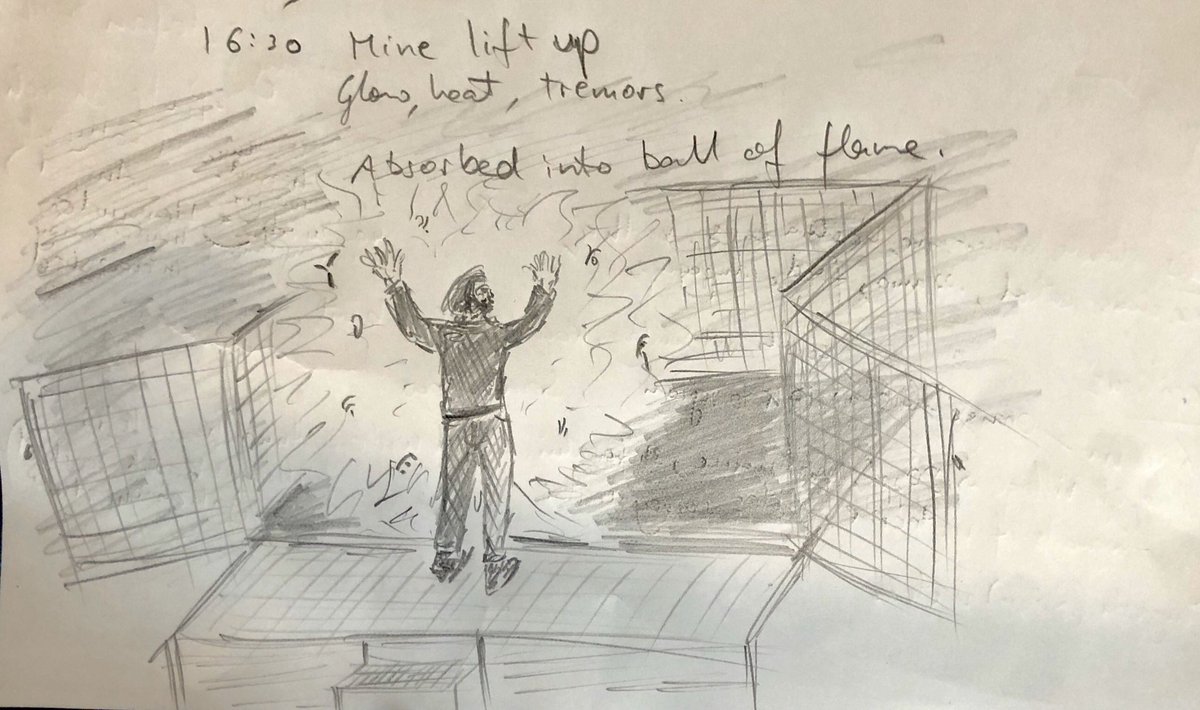 16:30 Mine lift up
Glow, heat, tremors.
Absorbed into ball of flame.